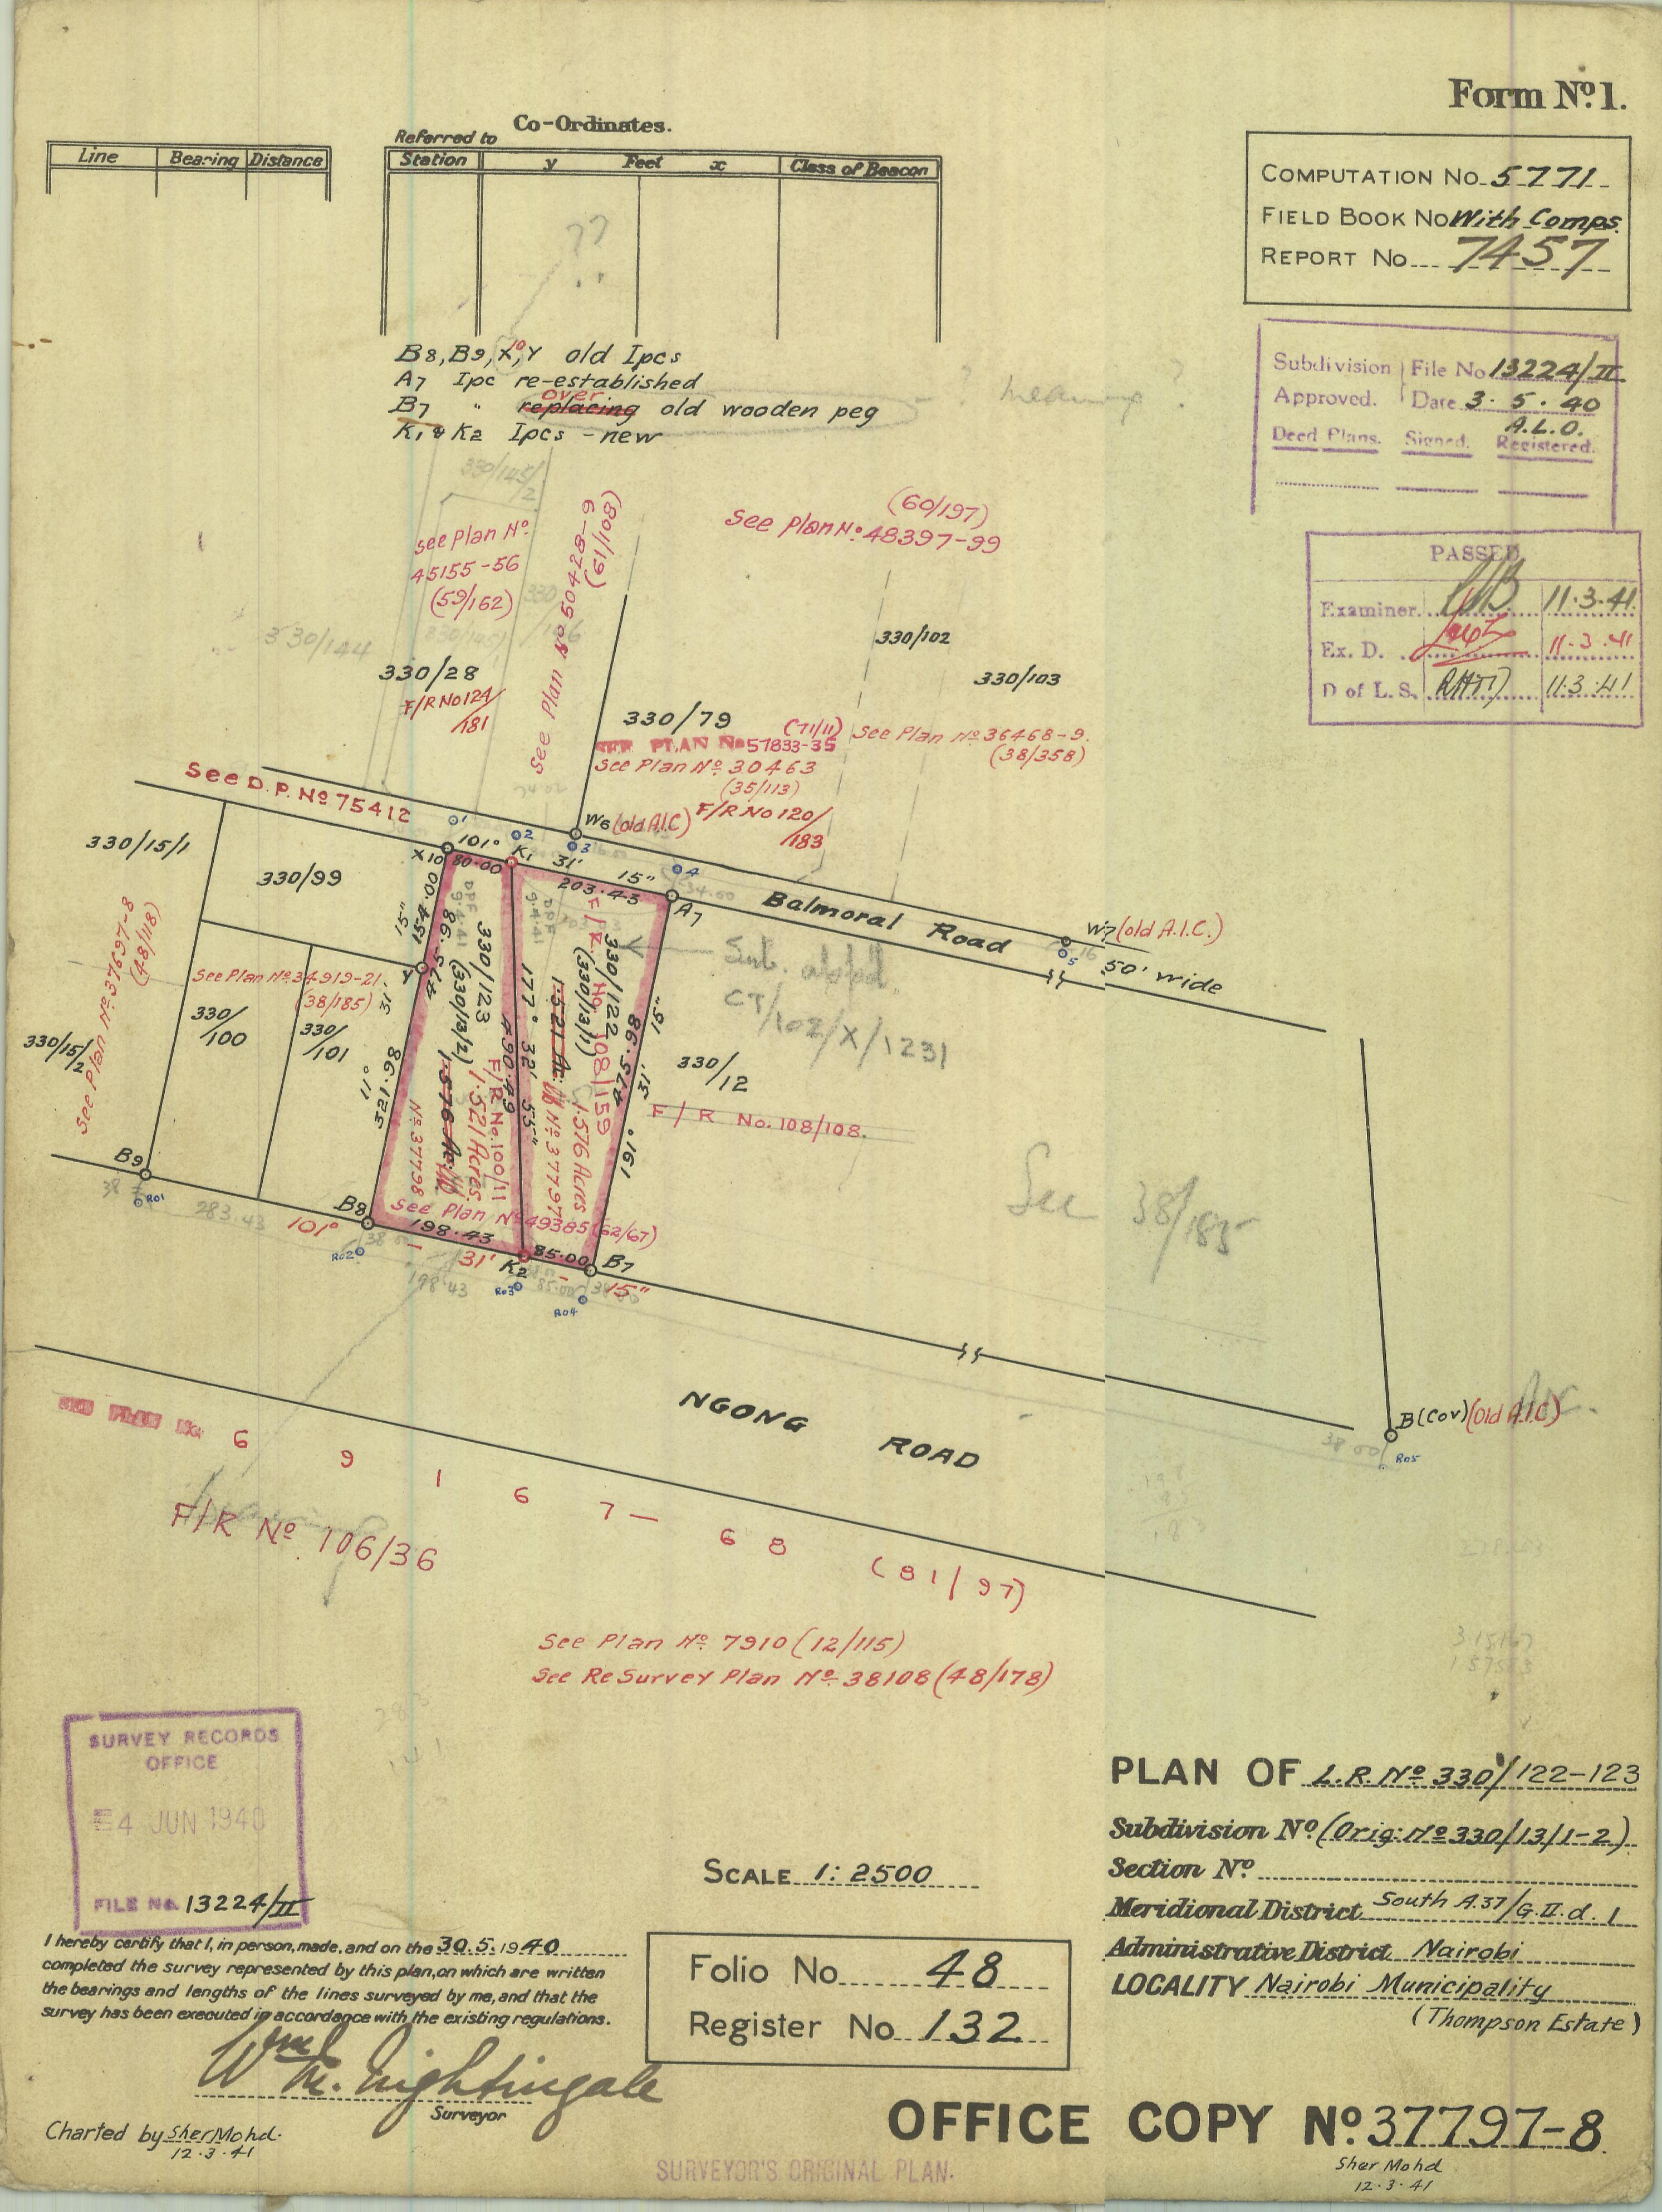 Form No 1.
Co-Ordinates.
Referred to
Line Bearing Distance
Station y Feet x Class of Beacon
COMPUTATION No 5771
FIELD BOOK No With Comps.
REPORT No 7457
??
B8, B9, X10, Y old Ipcs
A7 Ipc re-established
over
B7 " replacing old wooden peg
K1 & K2 Ipcs - new
? meaning ?
Subdivision File No 13224/II
Approved. Date 3.5.40
A.L.O.
Deed Plans. Signed. Registered.
PASSED
Examiner. 11.3.41
Ex. D. 11.3.41
D of L.S. 11.3.41
330/145/2
See Plan No.
45155-56
(59/162)
See Plan No 50428-9
(61/108)
(60/197)
See Plan No. 48397-99
330/144
330/28
F/R No 124/181
330/102
330/103
330/79
(71/11)
SEE PLAN No 57833-35
See Plan No. 30463
(35/113)
F/R No 120/183
See Plan No 36468-9.
(38/358)
See D.P. No 75412
330/15/1
330/99
1
2
3
4
W6 (old A.I.C)
X10
101° 31' 15"
80.00
K1
203.43
A7
Balmoral Road
W7 (old A.I.C.)
5
50' wide
See Plan No 37697-8
(48/118)
See Plan No. 34919-21.
(38/185)
330/100
330/101
330/15/2
15"
154.00
Y
31'
11°
321.98
86.574
330/123
(330/13/2)
1.576 Ac.
1.521 Acres
F/R No.100/11
No 37798
490.49
177° 32' 55"
330/122
(330/13/1)
1.521 Ac.
1.576 Acres
No 37797
F/R No 108/159
86.574
15"
31'
191°
Sub.
CT/102/X/1231
330/12
F/R No. 108/108.
See 38/185
B9
R01
283.43
B8
101° - 31' - 15"
See Plan No 49385 (62/67)
198.43
K2
85.00
B7
R02
R03
R04
198.43
85.00
B(Cov) (Old A.I.C)
38.00
R05
NGONG ROAD
SEE PLAN No 69167-68 (81/97)
F/R No 106/36
See Plan No. 7910 (12/115)
See ReSurvey Plan No. 38108 (48/178)
SURVEY RECORDS
OFFICE
4 JUN 1940
FILE No. 13224/II
SCALE 1:2500
PLAN OF L.R. No 330/122-123
Subdivision No (Orig: No 330/13/1-2)
Section No
Meridional District South A.37/G.II.d.1
Administrative District Nairobi
LOCALITY Nairobi Municipality
(Thompson Estate)
I hereby certify that I, in person, made, and on the 30.5.1940
completed the survey represented by this plan, on which are written
the bearings and lengths of the lines surveyed by me, and that the
survey has been executed in accordance with the existing regulations.
Wm M. Nightingale
Surveyor
Folio No 48
Register No 132
Charted by Sher Mohd.
12.3.41
OFFICE COPY No. 37797-8
Sher Mohd
12.3.41
SURVEYOR'S ORIGINAL PLAN.